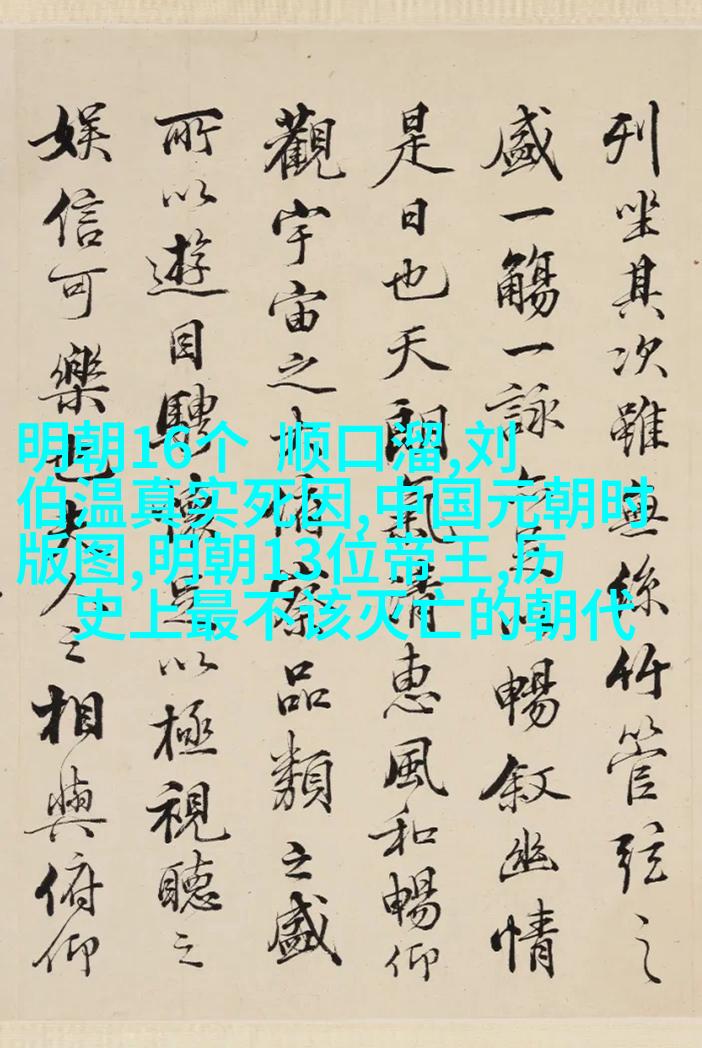 列坐其次雖無絲竹管弦之
盛一觴一詠以暢叙幽情
是日也天朗氣清惠風和暢仰
觀宇宙之大俯察品類之盛
所以遊目騁懷足以極視聽之
娱信可樂也夫人之相與俯仰
明朝16个 顺口溜,刘
伯温真实死因,中国元朝时
版图,明朝13位帝王,历
史上最不该灭亡的朝代